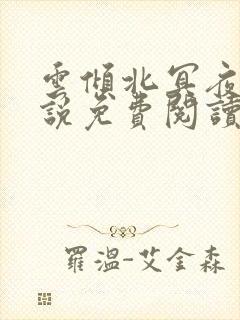 雲傾北冥夜
說免費閱讀
羅溫-艾金森